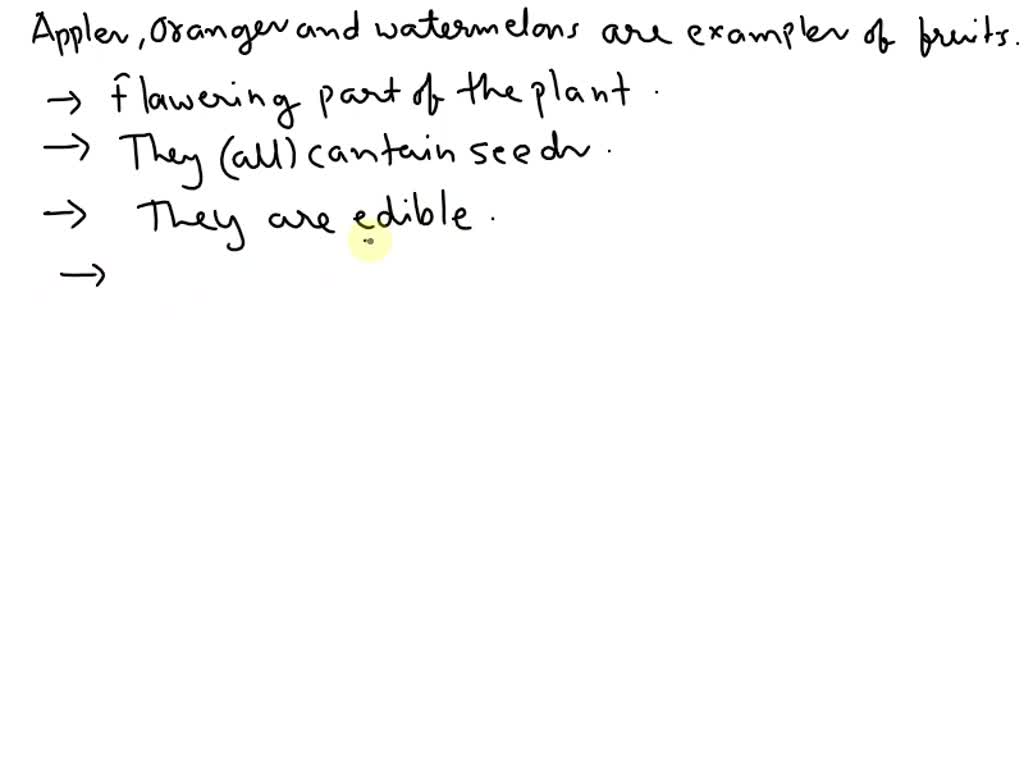 Apples, Oranges and watermelons are examples of fruits.
→ flawering part of the plant.
→ They (all) cantain seeds.
→ They are edible.
→